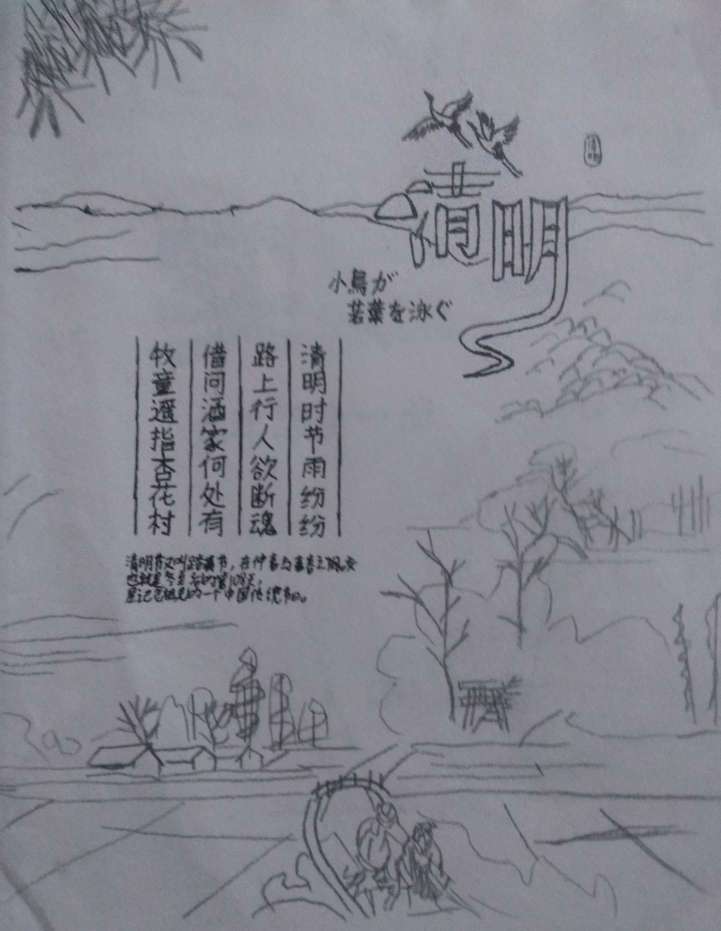 清明
清明
小鳥が
若葉を泳ぐ
清明时节雨纷纷
路上行人欲断魂
借问酒家何处有
牧童遥指杏花村
清明节又叫踏青节，在仲春与暮春之
也就是冬至后的第108天，
是一个中国传统节日。